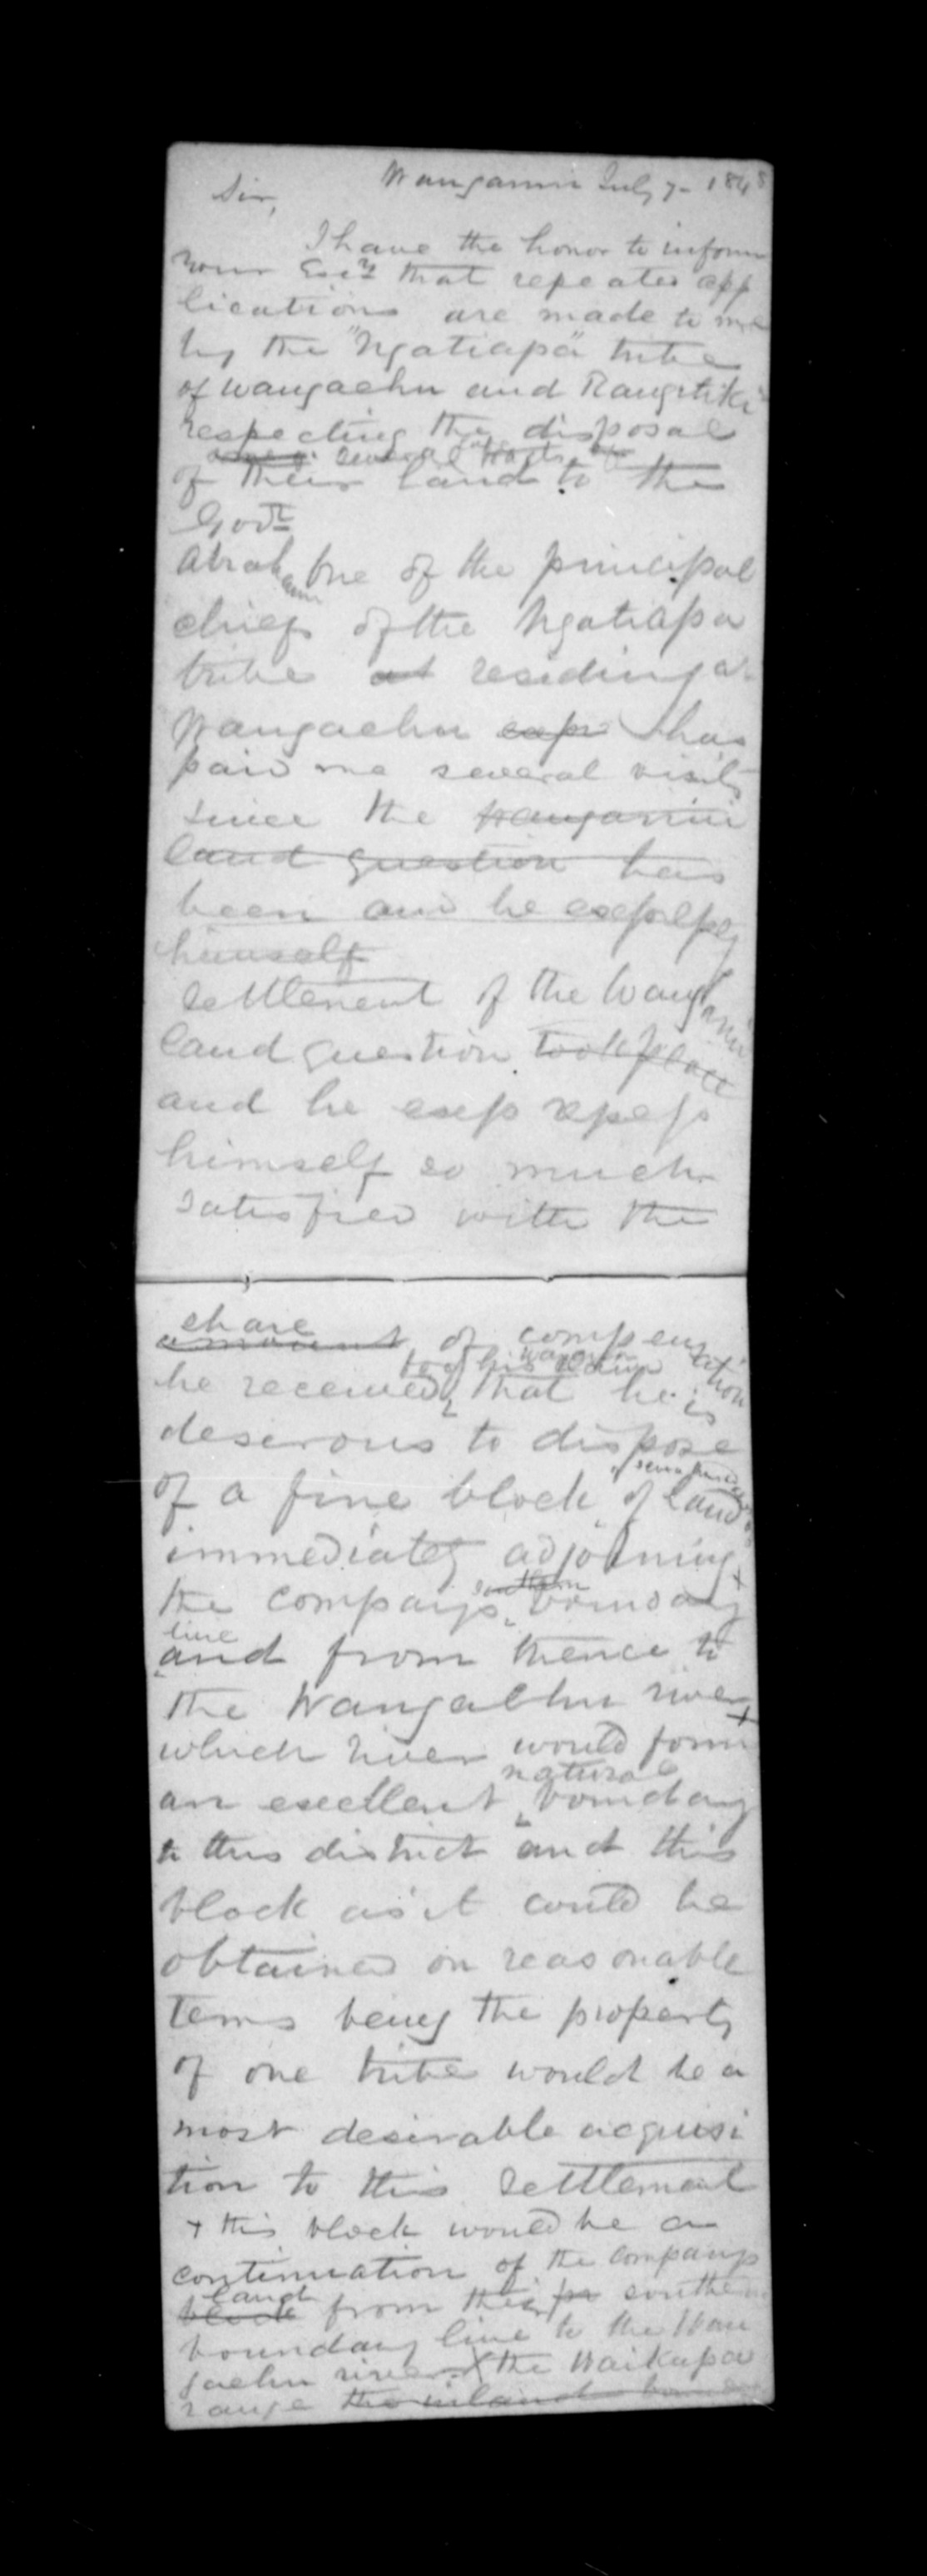 Wanganui July 7 - 1848
Sir,
I have the honor to inform
your Excy that repeated app
lications are made to me
by the "Ngatiapa" tribe
of Wangaehu and Rangitiki
respecting the disposal
several tracts of
of their land to the
Govt
Abraham One of the principal
chiefs of the Ngatiapa
tribe at residing at
Wangaehu exp has
paid me several visits
since the Wanganui
land question has
been and he expresses
himself
settlement of the Wanganui
land question took place
and he exep xpess
himself so much
satisfied with the
share
amount of compensation
he received, that he is
deserous to dispose
of a fine block of land
immediately adjoining
southern
the companys boundary
line
and from thence to
the Wangaehu river +
which river would form
natural
an excellent boundary
to this district and this
block as it could be
obtained on reasonable
terms being the property
of one tribe would be a
most desirable acquisi
tion to this settlement
+ this block would be a
continuation of the companys
land
block from their southern
boundary line to the Wan
gaehu river X the Waikupa
range the inland